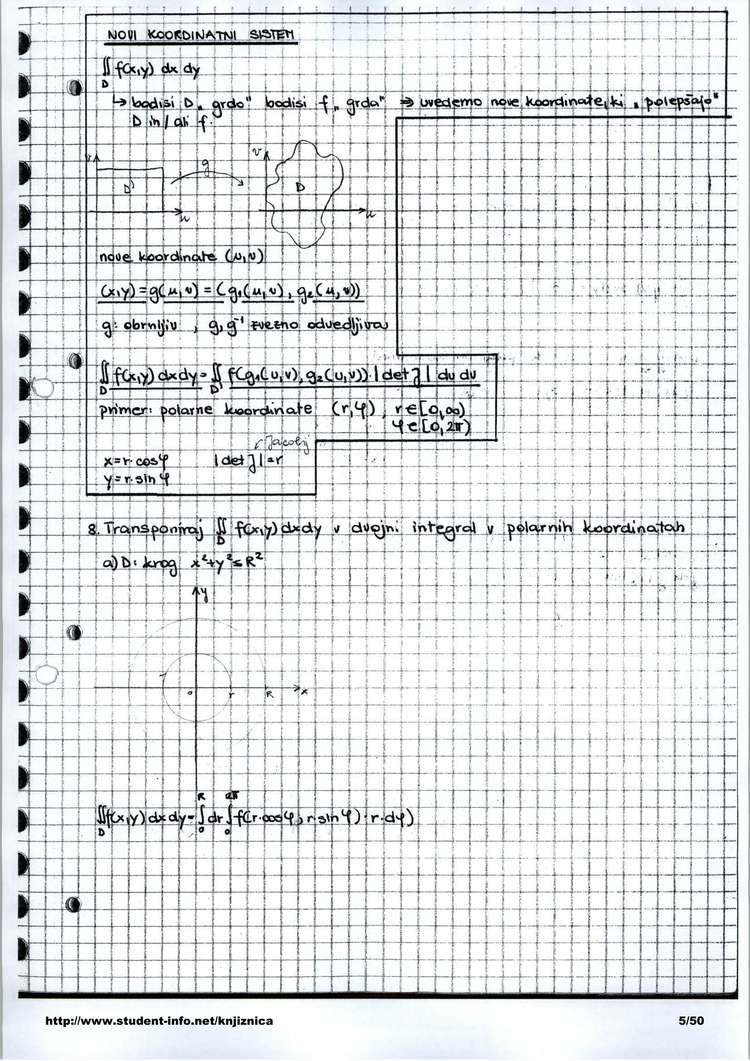 NOVI KOORDINATNI SISTEM
∬ f(x,y) dx dy
D
↳ bodisi D „grdo" bodisi f „grda" ⇒ uvedemo nove koordinate, ki „polepšajo"
D in/ali f.
v g v
D' D
u u
nove koordinate (u,v)
(x,y) = g(u,v) = (g₁(u,v), g₂(u,v))
g: obrnljiv, g, g⁻¹ zvezno odvedljiva
∬ f(x,y) dxdy = ∬ f(g₁(u,v), g₂(u,v)) · |det J| du dv
D D'
primer: polarne koordinate (r,φ), r∈[0,∞)
φ∈[0,2π)
Jacobij
x=r·cosφ |det J|=r
y=r·sinφ
8. Transponiraj ∬ f(x,y) dxdy v dvojni integral v polarnih koordinatah
D
a) D: krog x²+y²≤R²
y
0 r R x
R 2π
∬f(x,y) dx dy = ∫dr ∫f(r·cosφ, r·sinφ)·r·dφ)
D 0 0
http://www.student-info.net/knjiznica 5/50